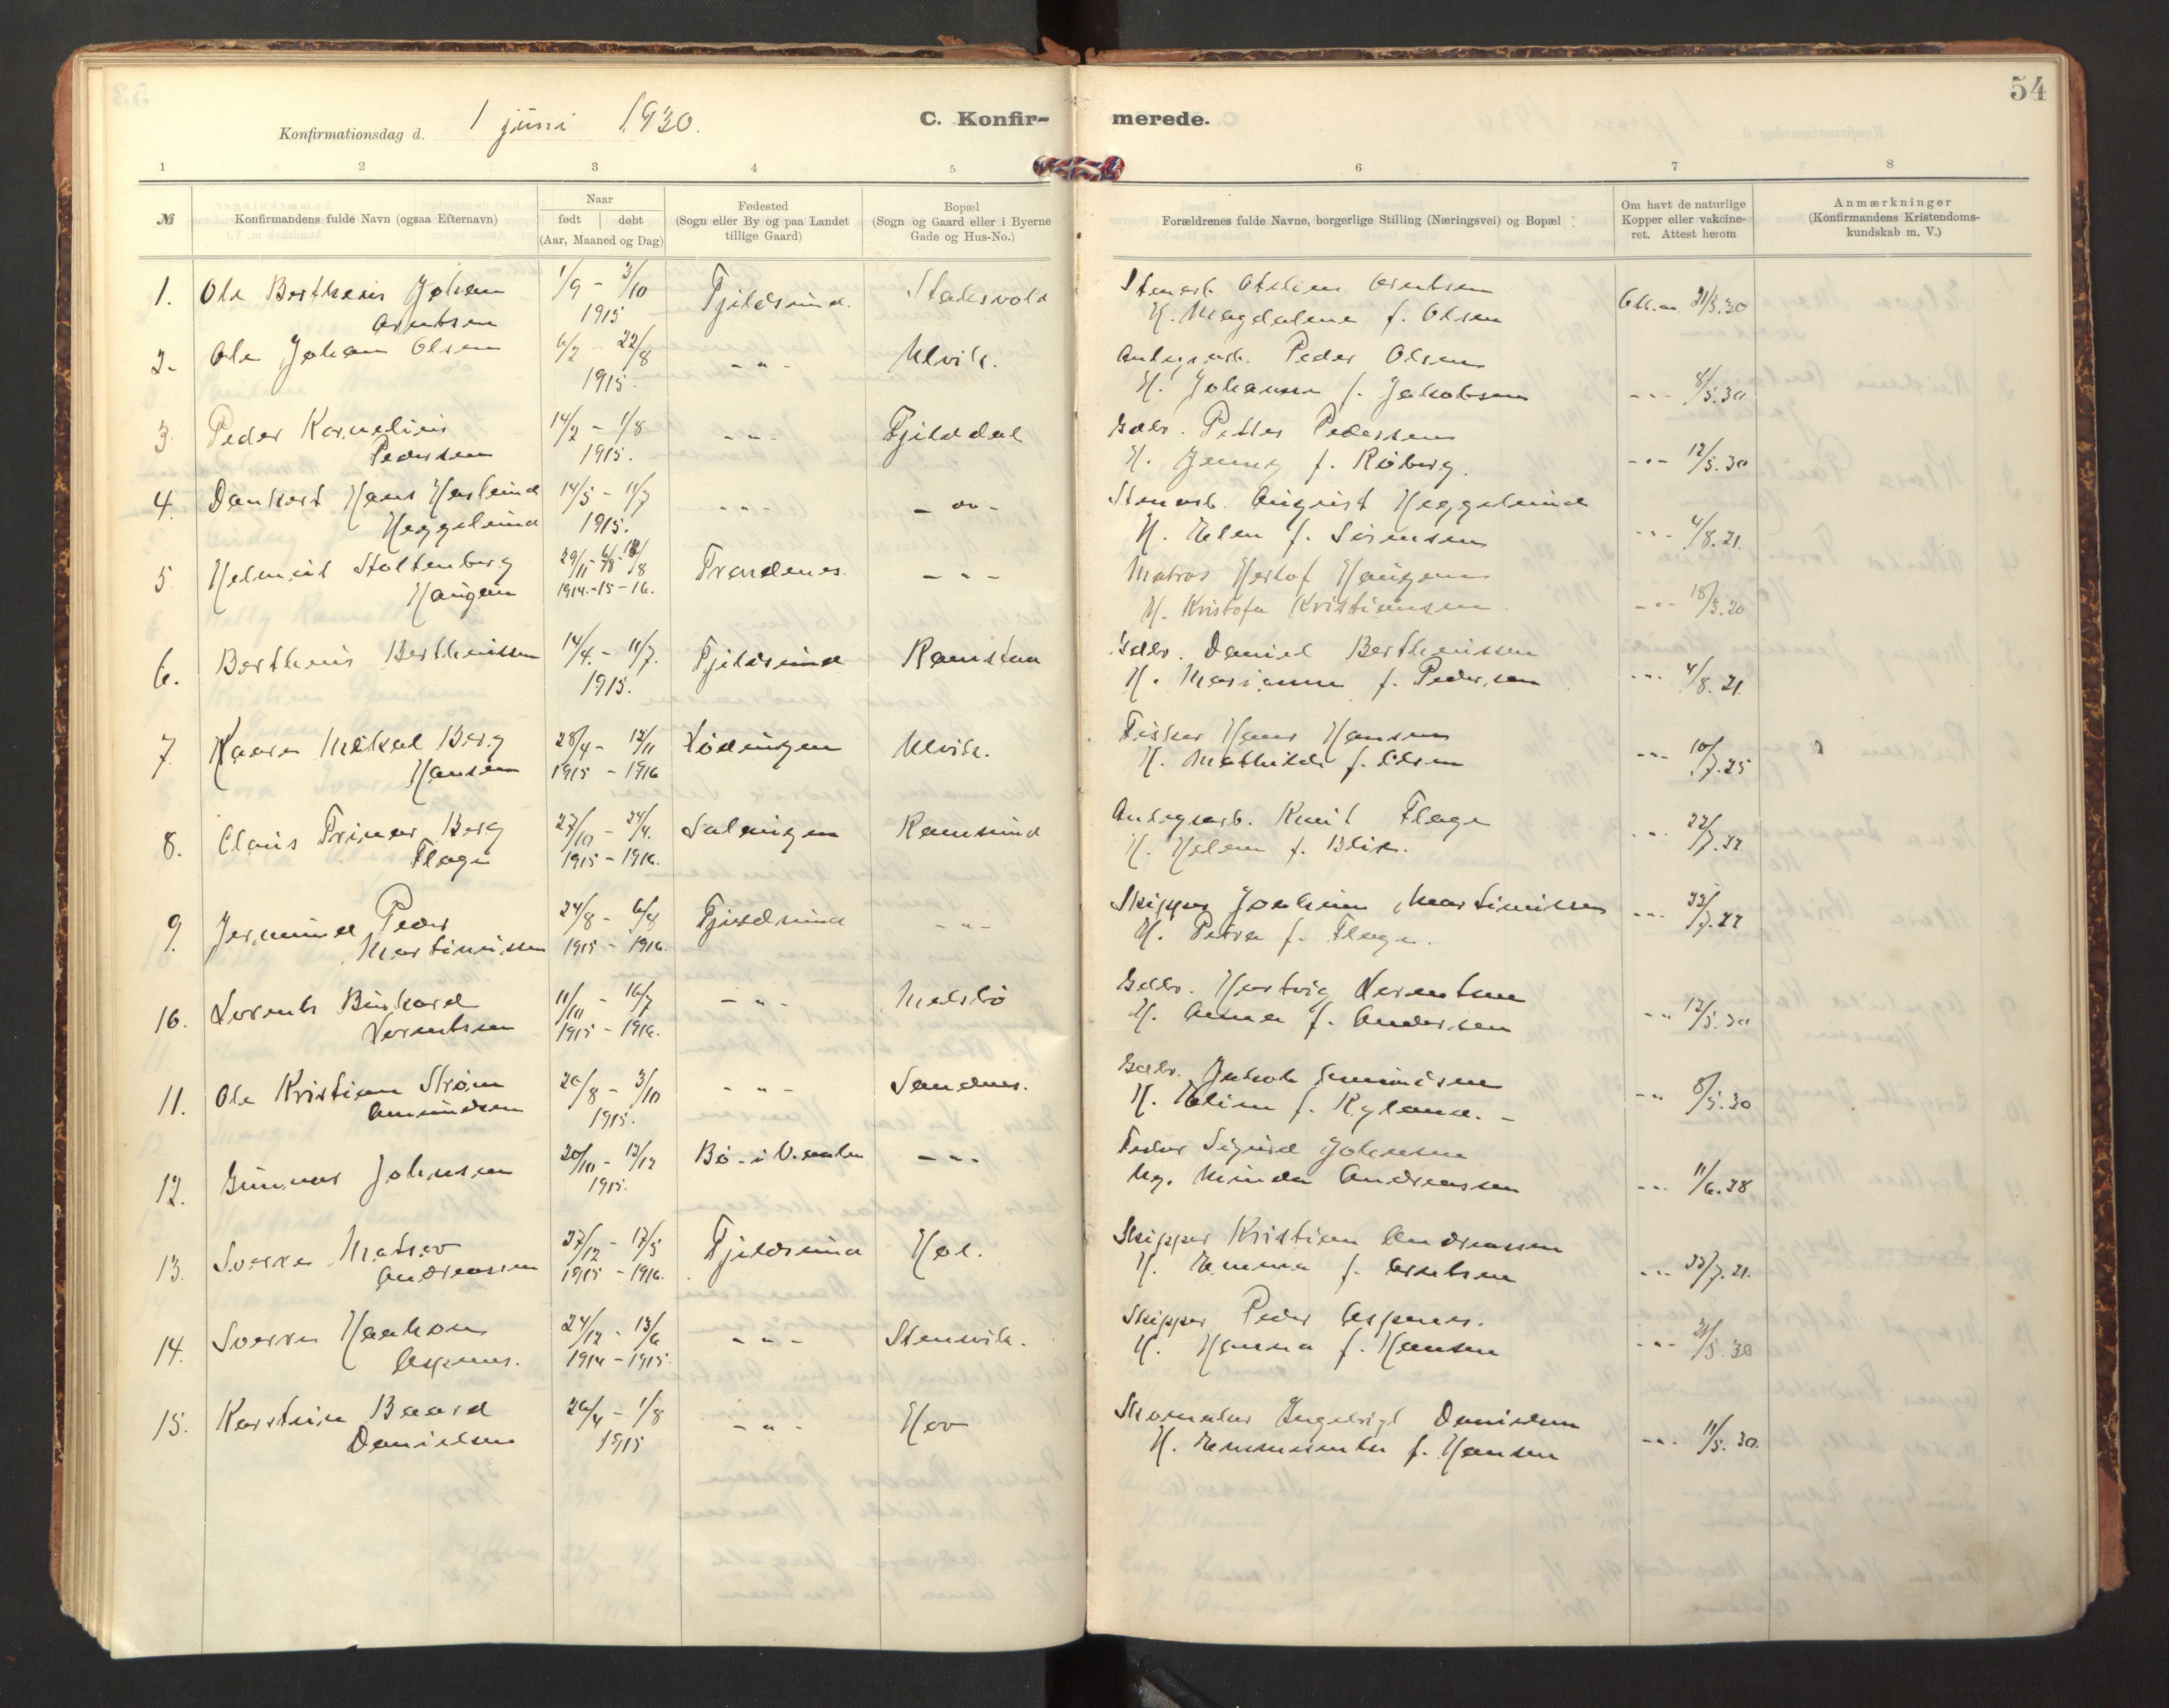 54
Konfirmationsdag d. 1 juni 1930.
C. Konfir-
merede.
1 2 3 4 5 6 7 8
№
Konfirmandens fulde Navn (ogsaa Efternavn)
Naar
født døbt
(Aar, Maaned og Dag)
Fødested
(Sogn eller By og paa Landet
tillige Gaard)
Bopæl
(Sogn og Gaard eller i Byerne
Gade og Hus-No.)
Forældrenes fulde Navne, borgerlige Stilling (Næringsvei) og Bopæl
Om havt de naturlige
Kopper eller vakcine-
ret. Attest herom
Anmærkninger
(Konfirmandens Kristendoms-
kundskab m. V.)
1. Ole Bertheus Johan 1/9 - 3/10 Fjeldsund. Stoksvold Stenarb. Arntsen
Arntsen 1915 H. Magdalene f. Olsen 21/5.30
2. Ole Johan Olsen 6/2 - 22/8 - " - Ulvik. Anlegsarb. Peder Olsen
1915. H. Johanna f. Jakobsen - " - 8/5.30
3. Peder Kornelius 14/2 - 1/8 - " - Fjelddal Gdbr. Petter Pedersen
Pedersen 1915. H. Jenny f. Röberg. - " - 12/5.30
4. Dankert Hans 14/5 - 11/7 - " - - " - Stenarb. August Heggelund
Heggelund 1915. H. Elen f. Sörensen - " - 4/8.21.
5 Helmut Stoltenberg 29/11 Trondenes. - " - Matros Herlof Haugen
Haugen 1914.-15-16. H. Kristofa Kristiansen - " - 18/3.20
6. Bertheus Bertheussen 14/4. - 11/7. Fjeldsund Ramstaa Gdbr. Daniel Bertheussen
1915. H. Marianne f. Pedersen - " - 4/8.21.
7. Kaare Mikal Berg 28/4 - 12/11 Lödingen Ulvik. Fisker Hans Hansen
Hansen 1915 - 1916 H. Mathilde f. Olsen - " - 10/7.25
8. Claus Berg 27/10 - 24/4. Salangen Ramsund Anlegsarb. Knut Flage
Flage 1915 - 1916. H. Helen f. Blix. - " - 22/7.22
9. Jermund Peder 24/8 Fjeldsund - " - Skipper Joakim Martinussen
Martinussen 1915 - 1916. H. Petra f. Flage. - " - 22/7.22
10. Lorents Burhard 11/11 - 16/7 - " - Melsbö Gdbr. Hartvig Lorentsen
Lorentsen 1915 - 1916. H. Anna f. Andersen - " 12/5.30
11. Ole Kristian Strøm 26/8 - 3/10 - " - Sandnes. Gdbr. Jakob Amundsen
Amundsen 1915. H. Elise f. Kyland. - - " 8/5.30
12. Gunnar Johnsen 20/10 - 12/12 Bö - i V.aalen - " - Fisker Sigurd Johnsen
1915. Ug. Minda Andreassen - " - 11/6.28
13. Sverre 27/12 - 17/5 Fjeldsund Hol. Skipper Kristian Andreassen
Andreassen 1915 - 1916. H. Emma f. Arntsen - " - 22/7.21.
14. Sverre Haakon 24/12 - 13/6 - " - Stensvik. Skipper Peder Aspenes.
Aspenes. 1914 - 1915. H. Hanna f. Hansen - " - 21/5.30
15. Karstein Baard 26/4 - 1/8 - " - Hov Skomaker Ingebrigt Danielsen
Danielsen 1915 H. f. Hansen - " - 11/5.30.